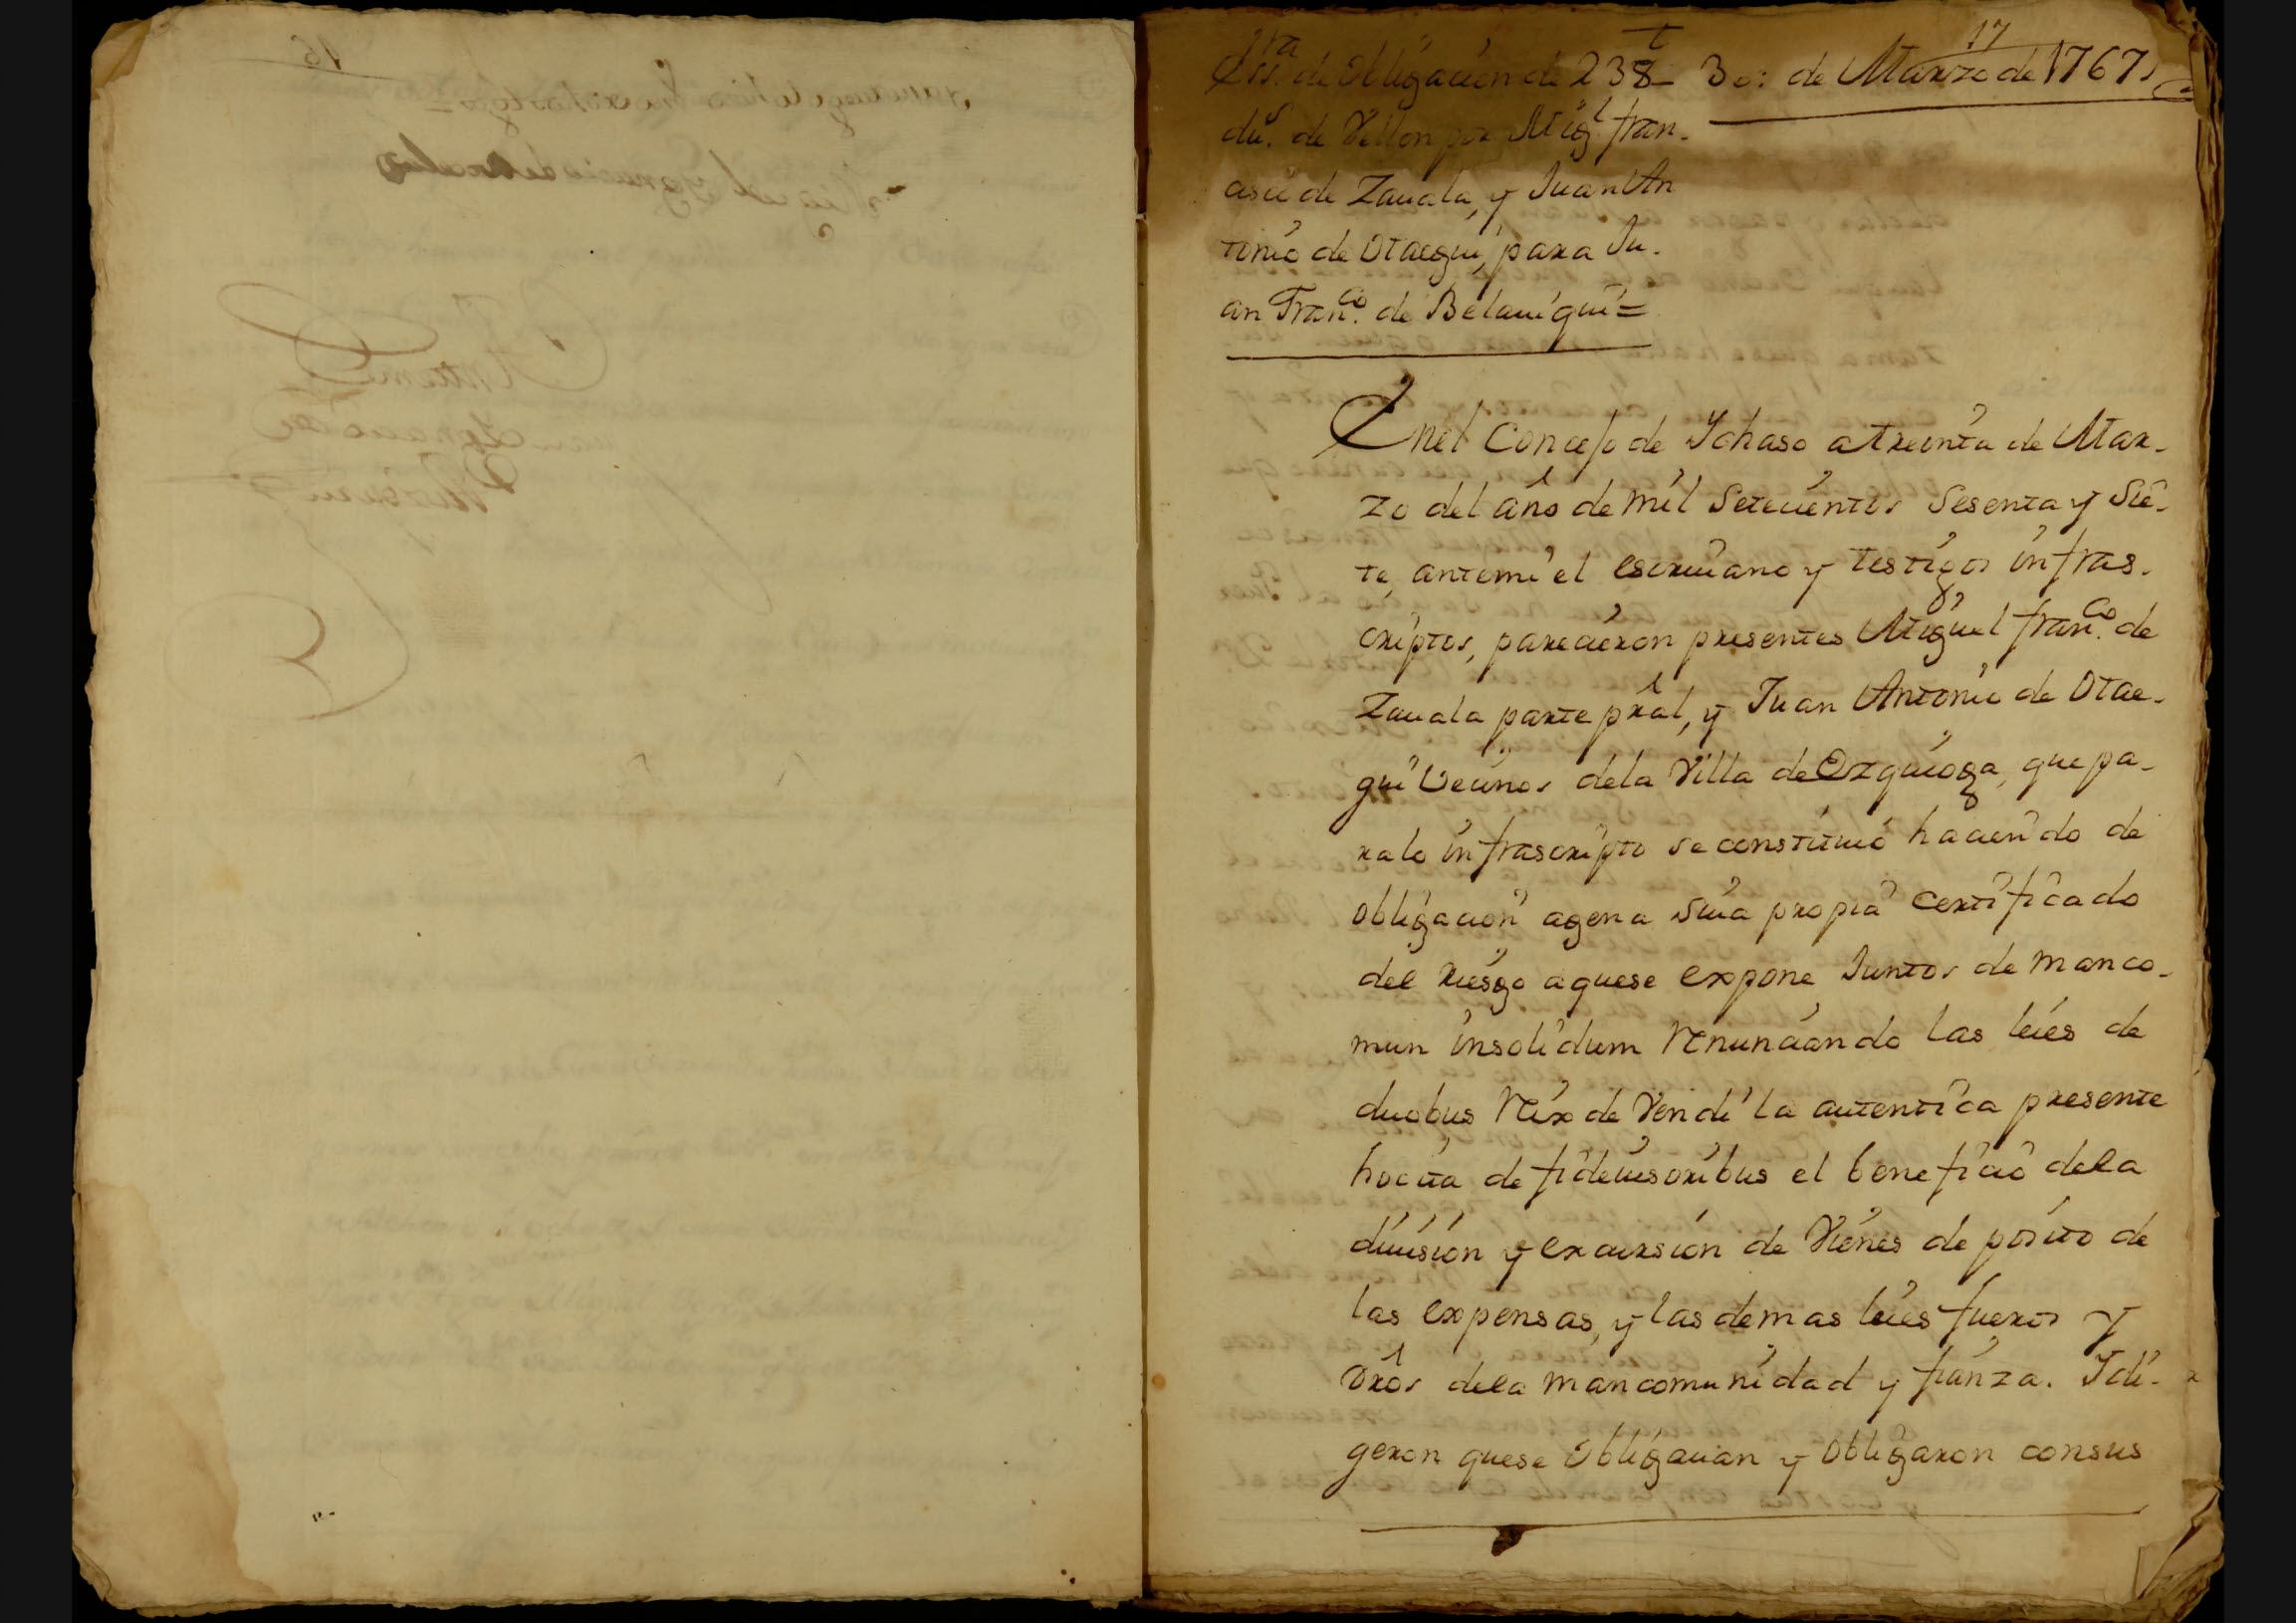 17
Essra. de obligacion de 238 30: de Marzo de 1767
dus. de Vellon por Migl. fran-
cisco de Zauala, y Juan An
tonio de Otaegui, para Ju-
an Franco. de Belauigui=
Enel Concejo de Ychaso atreinta de Mar-
zo del año de mil Setecientos Sesenta y Sie-
te, antemi el escriuano y testigos infras-
criptos, parecieron presentes Miguel franco. de
Zauala parte pral, y Juan Antonio de Otae-
gui Vecinos dela Villa de Ezquioga, que pa-
ralo infrascripto se constituió haciendo de
obligacion agena suia propia certificado
del riesgo aquese expone Juntos de manco-
mun insolidum renunciando las leies de
duobus reix de Vendi la autentica presente
hocita de fideiusoribus el beneficio dela
diuision y excursion de Vienes de posito de
las expensas, y las demas leies fueros y
dros dela mancomunidad y fianza. Ydi-
geron quese obligauan y obligaron consus